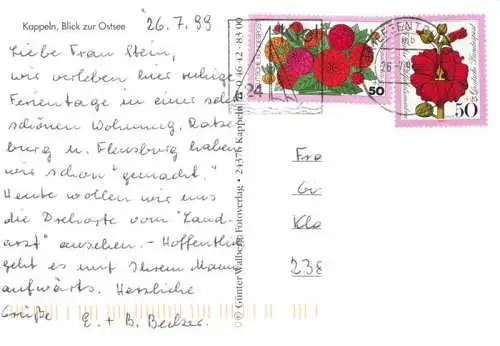 Kappeln, Blick zur Ostsee
26.7.99
Liebe Frau Stein,
wir verleben hier ruhige
Ferientage in einer sehr
schönen Wohnung. Ratze-
burg u. Flensburg haben
wir schon "gemacht."
Heute wollen wir uns
die Drehorte vom "Land-
arzt" ansehen. - Hoffentlich
geht es mit Ihrem Mann
aufwärts. Herzliche
Grüße E. + B. Becker.
© Günter Walberg Fotoverlag • 24376 Kappeln
24
50
50
Fra
Gr
Kla
238